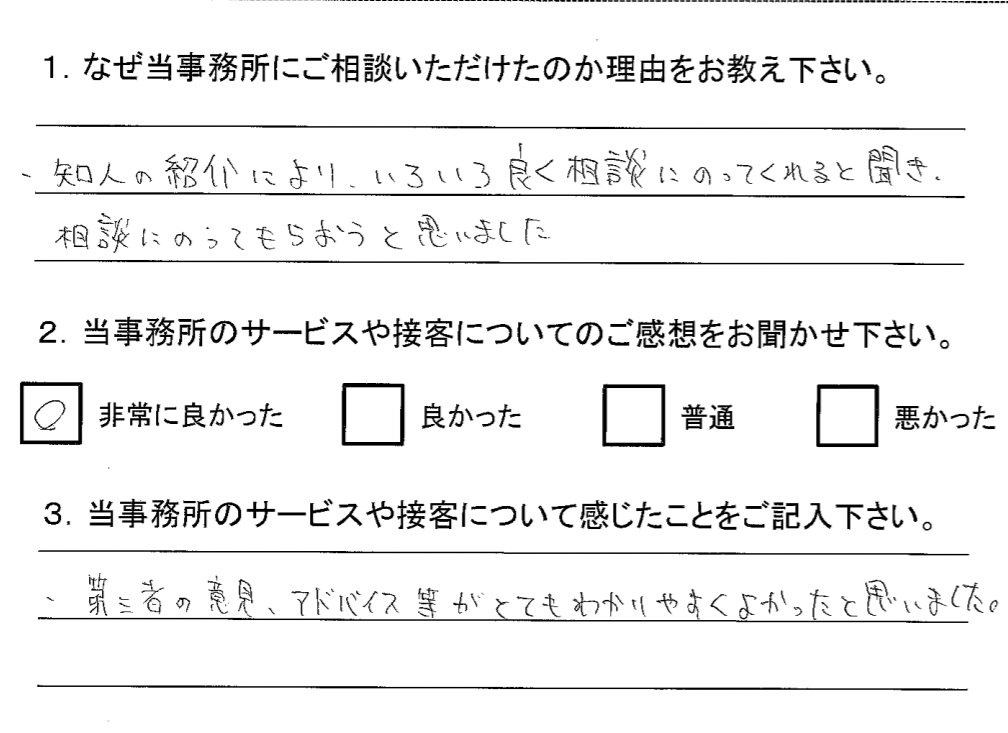 1. なぜ当事務所にご相談いただけたのか理由をお教え下さい。
、知人の紹介により、いろいろ良く相談にのってくれると聞き、
相談にのってもらおうと思いました
2. 当事務所のサービスや接客についてのご感想をお聞かせ下さい。
○ 非常に良かった 良かった 普通 悪かった
3. 当事務所のサービスや接客について感じたことをご記入下さい。
、第三者の意見、アドバイス等がとてもわかりやすくよかったと思いました。